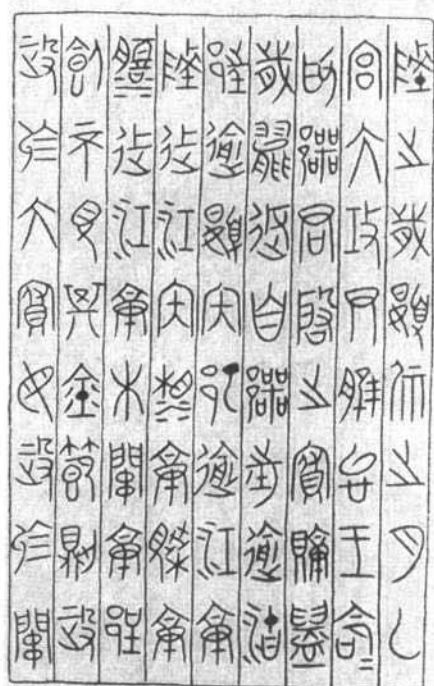 陵之歲夏㞕之月乙
宮大攻尹脽台王命=
為鄂君啟之府賡鑄
歲罷返自鄂市逾油
逾夏內邔逾江庚
陵上江內湘庚庚
上江庚木關庚郢
不見其金節則政
政於大府毋政於關